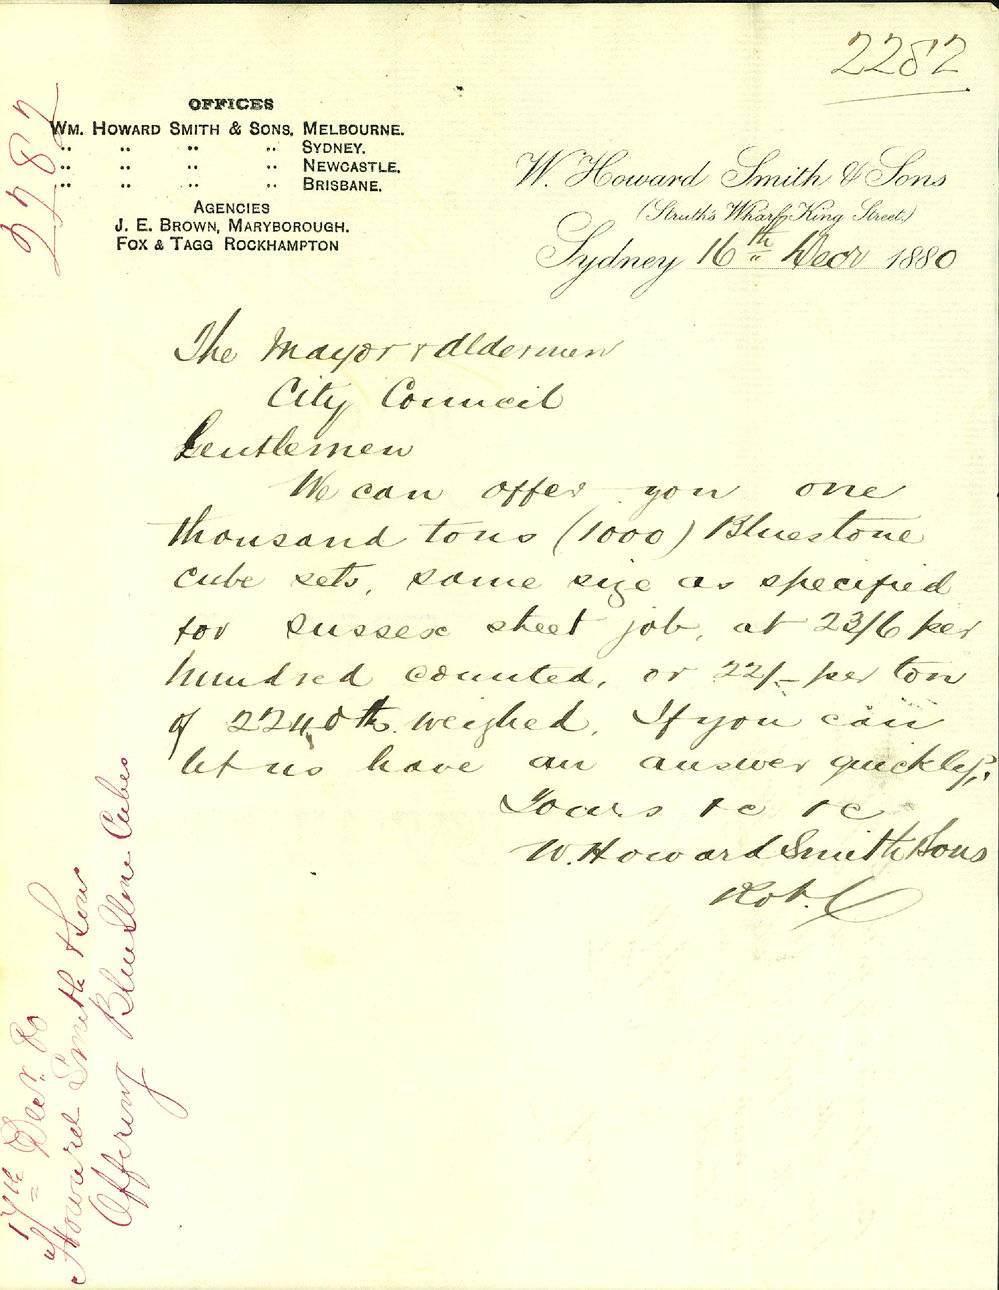 2282
OFFICES
WM. HOWARD SMITH & SONS, MELBOURNE.
" " " " SYDNEY.
" " " " NEWCASTLE.
" " " " BRISBANE.
AGENCIES
J. E. BROWN, MARYBOROUGH.
FOX & TAGG ROCKHAMPTON
W. Howard Smith & Sons
(Struth's Wharf, King Street.)
Sydney 16th Decr 1880
The Mayor & Aldermen
City Council
Gentlemen
We can offer you one
thousand tons (1000) Bluestone
cube sets, same size as specified
for Sussex street job, at 23/6 per
hundred counted, or 22/- per ton
of 2240 lb. weighed. If you can
let us have an answer quickly,
Yours &c &c
W. Howard Smith & Sons
2282
17th Decr. 80
Howard Smith & Sons
Offering Blue Stone Cubes